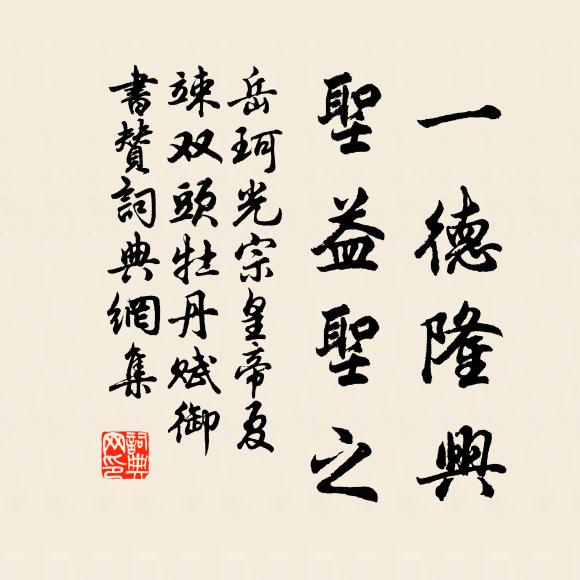 一德隆興
聖益聖之
岳珂光宗皇帝夏
竦双頭牡丹賦御
書贊詞典網集
詞典
网印